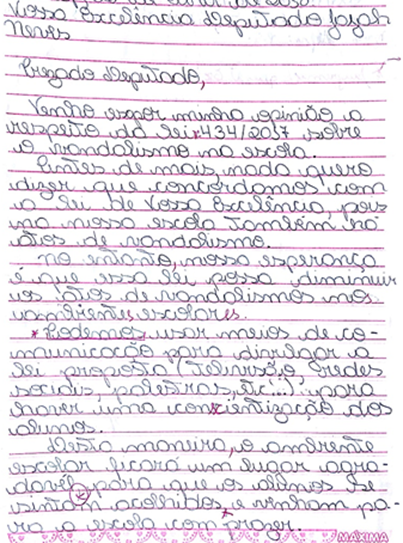 Vossa Excelência Deputado Jozah
Neres
Prezado Deputado,
Venho expor minha opinião a
respeito da lei 434/2017 sobre
o vandalismo na escola.
Antes de mais, nada quero
dizer que concordamos com
a lei de Vossa Excelência, pois
na nossa escola também há
atos de vandalismo.
No entanto, nossa esperança
é que essa lei possa diminuir
os atos de vandalismos nos
ambientes escolares.
*Podemos usar meios de co-
municação para divulgar a
lei proposta (televisão, redes
sociais, palestras, etc...) para
haver uma conscientização dos
alunos.
Desta maneira, o ambiente
escolar ficará um lugar agra-
davél para que os alunos se
sintam acolhidos e venham pa-
ra a escola com prazer.
MÁXIMA